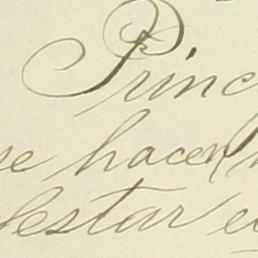 Princ
se hacen
estar e